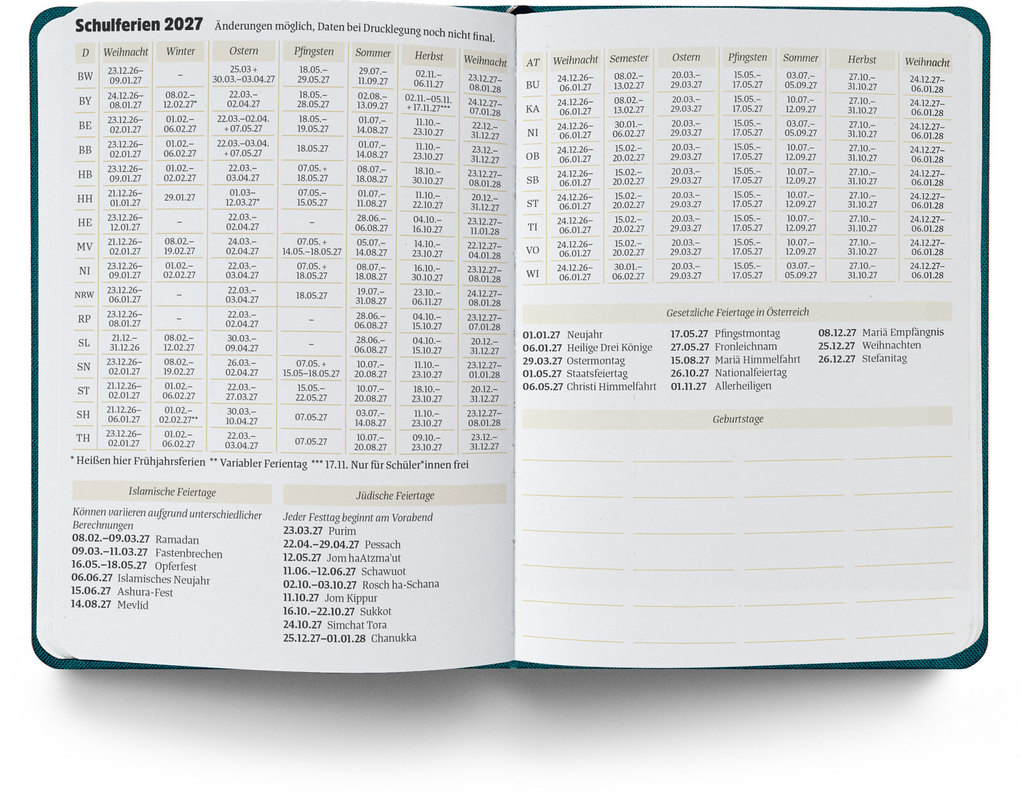 Schulferien 2027 Änderungen möglich, Daten bei Drucklegung noch nicht final.
D Weihnacht Winter Ostern Pfingsten Sommer Herbst Weihnacht
BW 23.12.26– 09.01.27 – 25.03 + 30.03.–03.04.27 18.05.– 29.05.27 29.07.– 11.09.27 02.11.– 06.11.27 23.12.27– 08.01.28
BY 24.12.26– 08.01.27 08.02.– 12.02.27* 22.03.– 02.04.27 18.05.– 28.05.27 02.08.– 13.09.27 02.11.–05.11. + 17.11.27*** 24.12.27– 07.01.28
BE 23.12.26– 02.01.27 01.02.– 06.02.27 22.03.–02.04. + 07.05.27 18.05.– 19.05.27 01.07.– 14.08.27 11.10.– 23.10.27 22.12.– 31.12.27
BB 23.12.26– 02.01.27 01.02.– 06.02.27 22.03.–03.04. + 07.05.27 18.05.27 01.07.– 14.08.27 11.10.– 23.10.27 23.12.– 31.12.27
HB 23.12.26– 09.01.27 01.02.– 02.02.27 22.03.– 03.04.27 07.05. + 18.05.27 08.07.– 18.08.27 18.10.– 30.10.27 23.12.27– 08.01.28
HH 21.12.26– 01.01.27 29.01.27 01.03– 12.03.27* 07.05.– 15.05.27 01.07.– 11.08.27 11.10.– 22.10.27 20.12.– 31.12.27
HE 23.12.26– 12.01.27 – 22.03.– 02.04.27 – 28.06.– 06.08.27 04.10.– 16.10.27 23.12.27– 11.01.28
MV 21.12.26– 02.01.27 08.02.– 19.02.27 24.03.– 02.04.27 07.05. + 14.05.–18.05.27 05.07.– 14.08.27 14.10.– 23.10.27 22.12.27– 04.01.28
NI 23.12.26– 09.01.27 01.02.– 02.02.27 22.03.– 03.04.27 07.05. + 18.05.27 08.07.– 18.08.27 16.10.– 30.10.27 23.12.27– 08.01.28
NRW 23.12.26– 06.01.27 – 22.03.– 03.04.27 18.05.27 19.07.– 31.08.27 23.10.– 06.11.27 24.12.27– 08.01.28
RP 23.12.26– 08.01.27 – 22.03.– 02.04.27 – 28.06.– 06.08.27 04.10.– 15.10.27 23.12.27– 07.01.28
SL 21.12.– 31.12.26 08.02.– 12.02.27 30.03.– 09.04.27 – 28.06.– 06.08.27 04.10.– 15.10.27 20.12.– 31.12.27
SN 23.12.26– 02.01.27 08.02.– 19.02.27 26.03.– 02.04.27 07.05. + 15.05–18.05.27 10.07.– 20.08.27 11.10.– 23.10.27 23.12.27– 01.01.28
ST 21.12.26– 02.01.27 01.02.– 06.02.27 22.03.– 27.03.27 15.05.– 22.05.27 10.07.– 20.08.27 18.10.– 23.10.27 20.12.– 31.12.27
SH 21.12.26– 06.01.27 01.02.– 02.02.27** 30.03.– 10.04.27 07.05.27 03.07.– 14.08.27 11.10.– 23.10.27 23.12.27– 08.01.28
TH 23.12.26– 02.01.27 01.02.– 06.02.27 22.03.– 03.04.27 07.05.27 10.07.– 20.08.27 09.10.– 23.10.27 23.12.– 31.12.27
* Heißen hier Frühjahrsferien ** Variabler Ferientag *** 17.11. Nur für Schüler*innen frei
Islamische Feiertage
Können variieren aufgrund unterschiedlicher
Berechnungen
08.02.–09.03.27 Ramadan
09.03.–11.03.27 Fastenbrechen
16.05.–18.05.27 Opferfest
06.06.27 Islamisches Neujahr
15.06.27 Ashura-Fest
14.08.27 Mevlid
Jüdische Feiertage
Jeder Festtag beginnt am Vorabend
23.03.27 Purim
22.04.–29.04.27 Pessach
12.05.27 Jom haAtzma'ut
11.06.–12.06.27 Schawuot
02.10.–03.10.27 Rosch ha-Schana
11.10.27 Jom Kippur
16.10.–22.10.27 Sukkot
24.10.27 Simchat Tora
25.12.27–01.01.28 Chanukka
AT Weihnacht Semester Ostern Pfingsten Sommer Herbst Weihnacht
BU 24.12.26– 06.01.27 08.02.– 13.02.27 20.03.– 29.03.27 15.05.– 17.05.27 03.07.– 05.09.27 27.10.– 31.10.27 24.12.27– 06.01.28
KA 24.12.26– 06.01.27 08.02.– 13.02.27 20.03.– 29.03.27 15.05.– 17.05.27 10.07.– 12.09.27 27.10.– 31.10.27 24.12.27– 06.01.28
NI 24.12.26– 06.01.27 30.01.– 06.02.27 20.03.– 29.03.27 15.05.– 17.05.27 03.07.– 05.09.27 27.10.– 31.10.27 24.12.27– 06.01.28
OB 24.12.26– 06.01.27 15.02.– 20.02.27 20.03.– 29.03.27 15.05.– 17.05.27 10.07.– 12.09.27 27.10.– 31.10.27 24.12.27– 06.01.28
SB 24.12.26– 06.01.27 15.02.– 20.02.27 20.03.– 29.03.27 15.05.– 17.05.27 10.07.– 12.09.27 27.10.– 31.10.27 24.12.27– 06.01.28
ST 24.12.26– 06.01.27 15.02.– 20.02.27 20.03.– 29.03.27 15.05.– 17.05.27 10.07.– 12.09.27 27.10.– 31.10.27 24.12.27– 06.01.28
TI 24.12.26– 06.01.27 15.02.– 20.02.27 20.03.– 29.03.27 15.05.– 17.05.27 10.07.– 12.09.27 27.10.– 31.10.27 24.12.27– 06.01.28
VO 24.12.26– 06.01.27 15.02.– 20.02.27 20.03.– 29.03.27 15.05.– 17.05.27 10.07.– 12.09.27 27.10.– 31.10.27 24.12.27– 06.01.28
WI 24.12.26– 06.01.27 30.01.– 06.02.27 20.03.– 29.03.27 15.05.– 17.05.27 03.07.– 05.09.27 27.10.– 31.10.27 24.12.27– 06.01.28
Gesetzliche Feiertage in Österreich
01.01.27 Neujahr
06.01.27 Heilige Drei Könige
29.03.27 Ostermontag
01.05.27 Staatsfeiertag
06.05.27 Christi Himmelfahrt
17.05.27 Pfingstmontag
27.05.27 Fronleichnam
15.08.27 Mariä Himmelfahrt
26.10.27 Nationalfeiertag
01.11.27 Allerheiligen
08.12.27 Mariä Empfängnis
25.12.27 Weihnachten
26.12.27 Stefanitag
Geburtstage